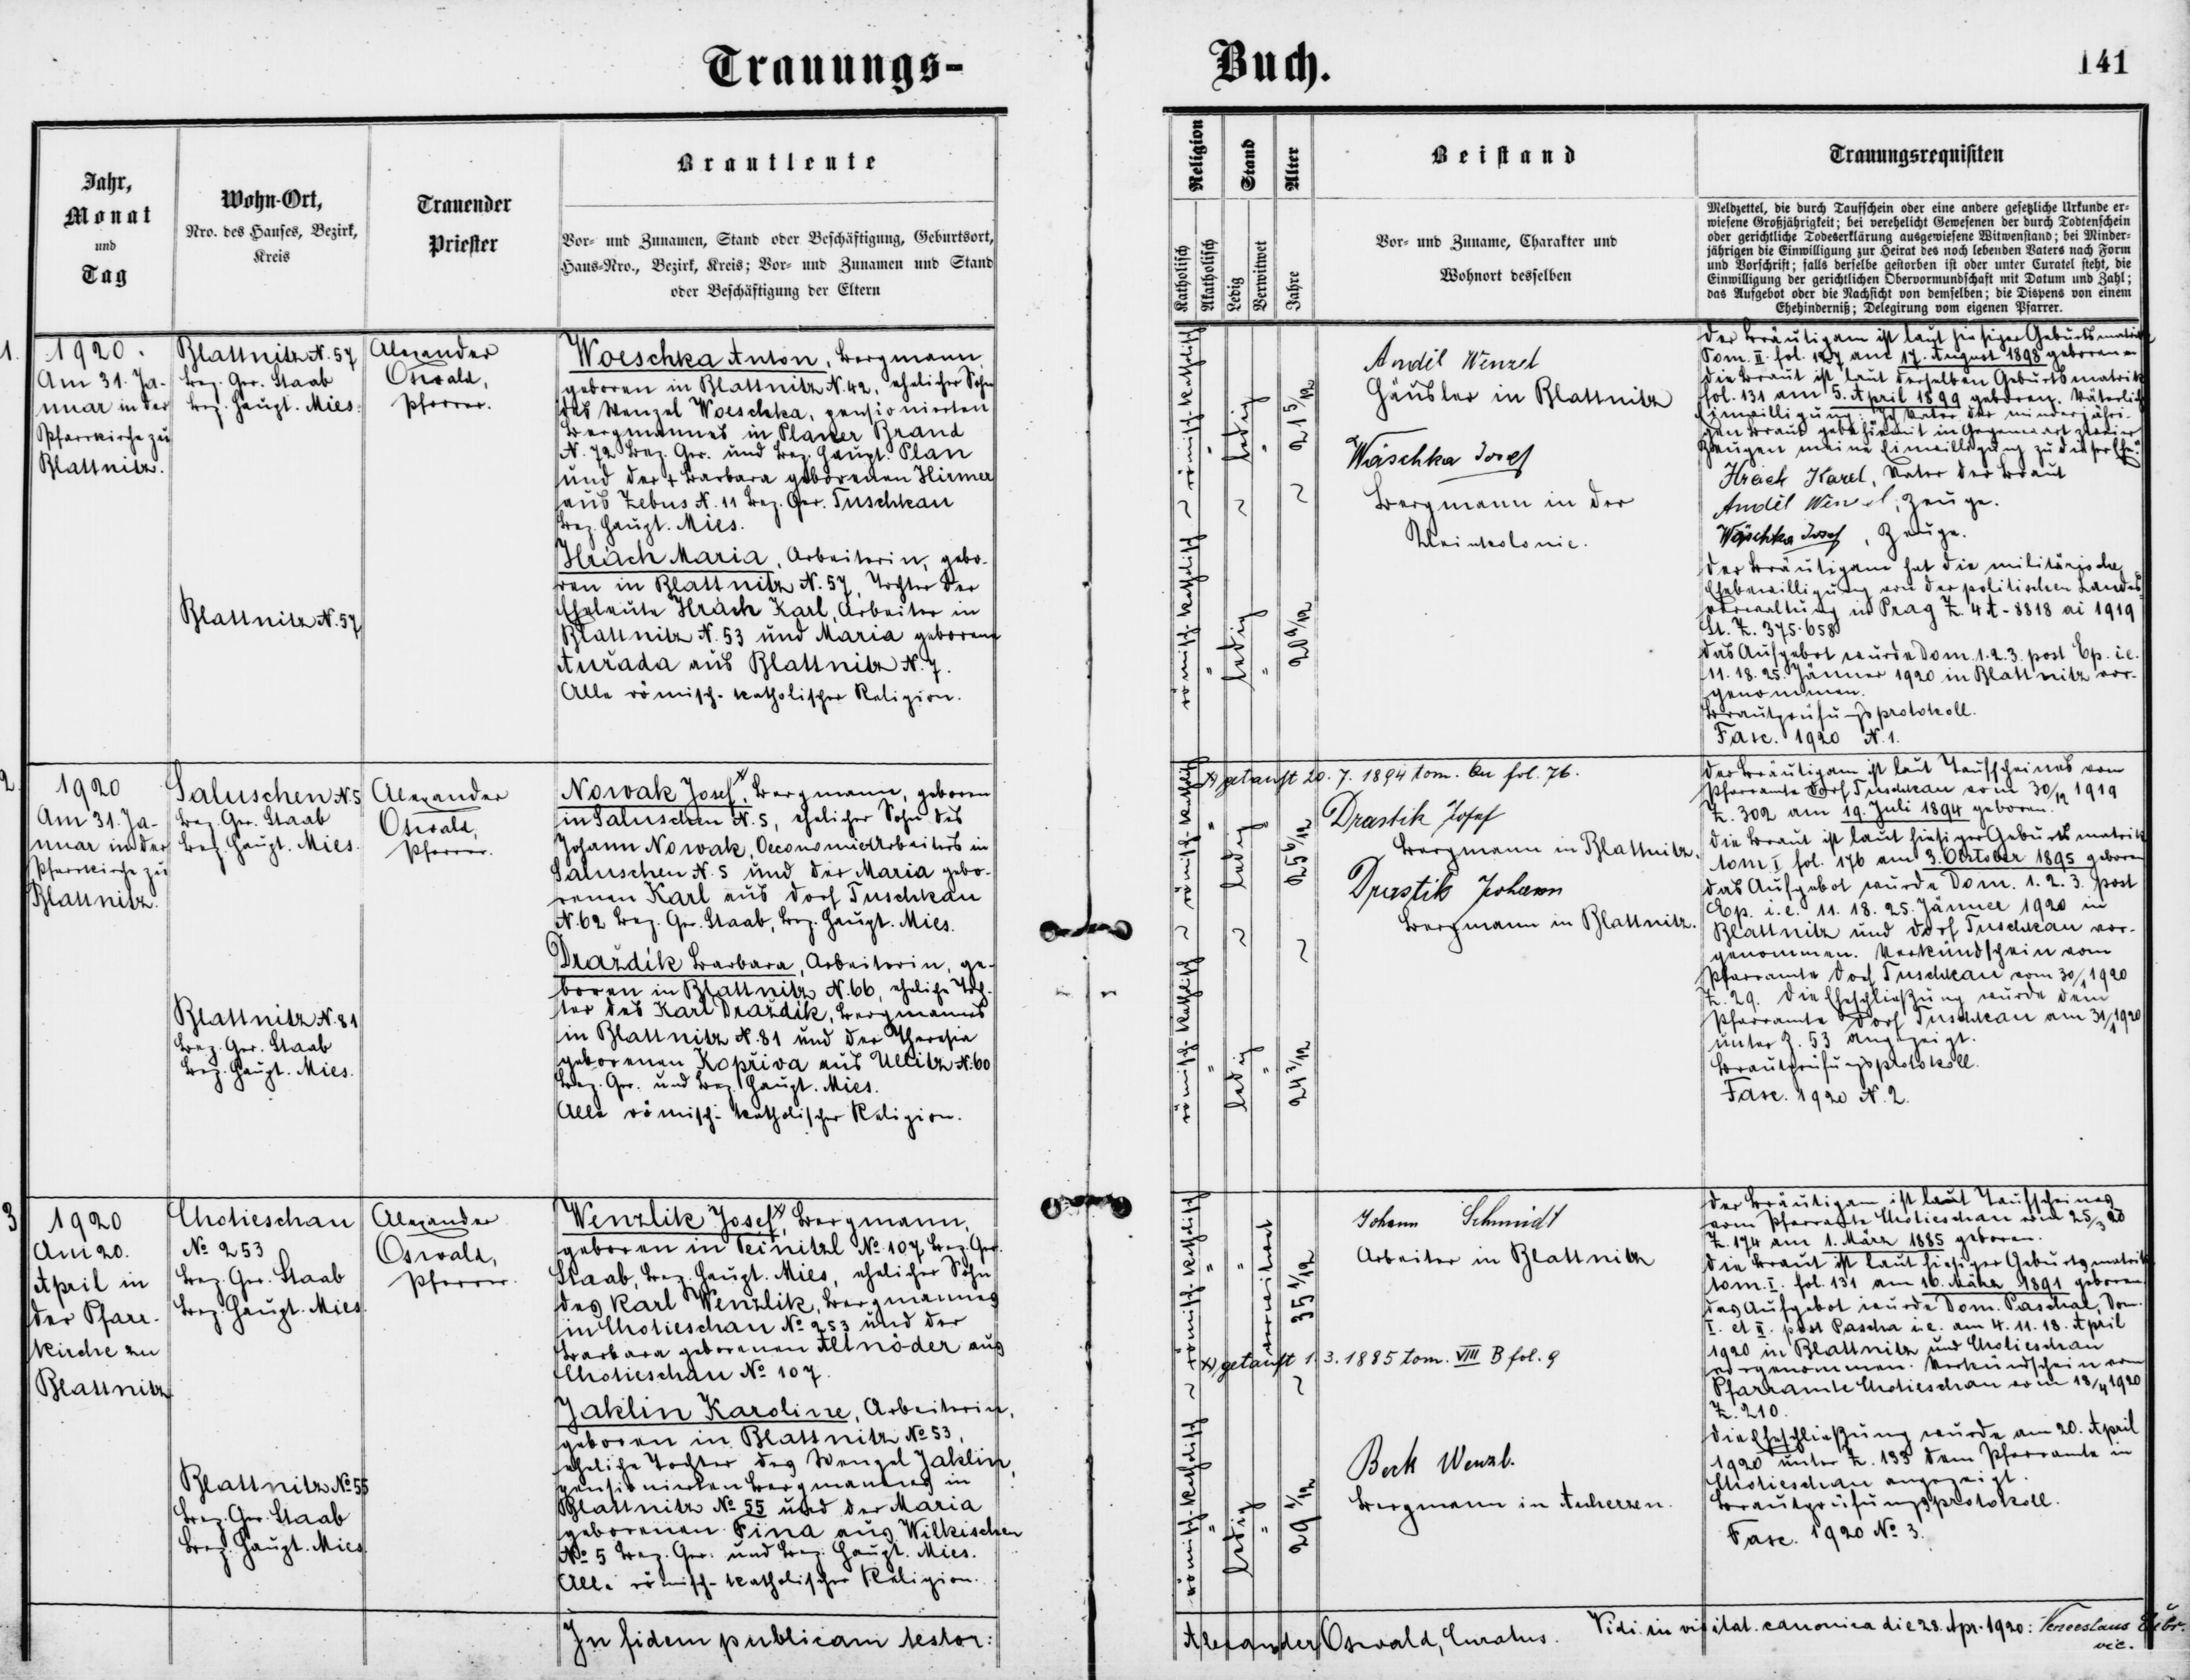 Trauungs-
Jahr,
Monat
und
Tag
Wohn-Ort,
Nro. des Hauses, Bezirk,
Kreis
Trauender
Priester
Brautleute
Vor- und Zunamen, Stand oder Beschäftigung, Geburtsort,
Haus-Nro., Bezirk, Kreis; Vor- und Zunamen und Stand
oder Beschäftigung der Eltern
1.
1920.
Am 31. Ja-
nuar in der
Pfarrkirche zu
Blattnitz.
Blattnitz N. 57
Bez. Ger. Staab
Bez. Haupt. Mies.
Blattnitz N. 57
Alexander
Oswald,
Pfarrer.
Woeschka Anton, Bergmann,
geboren in Blattnitz N. 42, ehelicher Sohn
des Wenzel Woeschka, pensionierten
Bergmannes in Planer Brand
N. 72 Bez. Ger. und Bez. Haupt. Plan
und der + Barbara geborenen Hirmer
aus Zebus N. 11 Bez. Ger. Tuschkau
Bez. Haupt. Mies.
Hrách Maria, Arbeiterin, gebo-
ren in Blattnitz N. 57, Tochter der
Eheleute Hrách Karl, Arbeiter in
Blattnitz N. 53 und Maria geborene
Auřada aus Blattnitz N. 7.
Alle römisch-katholischer Religion.
2
1920
Am 31. Ja-
nuar in der
Pfarrkirche zu
Blattnitz.
Saluschen N. 5
Bez. Ger. Staab
Bez. Haupt. Mies.
Blattnitz N. 81
Bez. Ger. Staab
Bez. Haupt. Mies.
Alexander
Oswald,
Pfarrer.
Nowak Josef x), Bergmann, geboren
in Saluschen N. 5, ehelicher Sohn des
Johann Nowak, Oeconomiearbeiters in
Saluschen N. 5 und der Maria gebo-
renen Karl aus Dorf Tuschkau
N. 62 Bez. Ger. Staab, Bez. Haupt. Mies.
Draždik Barbara, Arbeiterin, ge-
boren in Blattnitz N. 66, eheliche Toch-
ter des Karl Draždik, Bergmannes
in Blattnitz N. 81 und der Theresia
geborenen Kopřiva aus Ullitz N. 60
Bez. Ger. und Bez. Haupt. Mies.
Alle römisch-katholischer Religion.
3
1920
Am 20.
April in
der Pfarr-
kirche zu
Blattnitz
Chotieschau
No 253
Bez. Ger. Staab
Bez. Haupt. Mies.
Blattnitz No 55
Bez. Ger. Staab
Bez. Haupt. Mies.
Alexander
Oswald,
Pfarrer.
Wenzlik Josef x), Bergmann,
geboren in Teinitzl No 107 Bez. Ger.
Staab, Bez. Haupt. Mies, ehelicher Sohn
des Karl Wenzlik, Bergmannes
in Chotieschau No 253 und der
Barbara geborenen Altnöder aus
Chotieschau No 107.
Jaklin Karoline, Arbeiterin,
geboren in Blattnitz No 53,
eheliche Tochter des Wenzel Jaklin,
pensionierten Bergmannes in
Blattnitz No 55 und der Maria
geborenen Fina aus Wilkischen
No 5 Bez. Ger. und Bez. Haupt. Mies.
Alle römisch-katholischer Religion.
In fidem publicam testor:
Buch.
141
Religion
Stand
Alter
Katholisch
Akatholisch
Ledig
Verwitwet
Jahre
Beistand
Vor- und Zuname, Charakter und
Wohnort desselben
Trauungsrequisiten
Meldzettel, die durch Taufschein oder eine andere gesetzliche Urkunde er-
wiesene Großjährigkeit; bei verehelicht Gewesenen der durch Todtenschein
oder gerichtliche Todeserklärung ausgewiesene Witwenstand; bei Minder-
jährigen die Einwilligung zur Heirat des noch lebenden Vaters nach Form
und Vorschrift; falls derselbe gestorben ist oder unter Curatel steht, die
Einwilligung der gerichtlichen Obervormundschaft mit Datum und Zahl;
das Aufgebot oder die Nachsicht von demselben; die Dispens von einem
Ehehinderniß; Delegirung vom eigenen Pfarrer.
römisch-katholisch
ledig
21 5/12
römisch-katholisch
ledig
Anděl Wenzel
Häusler in Blattnitz
Wäschka Josef
Bergmann in der
der Bräutigam ist laut hiesiger Geburtsmatrik
Tom. II. fol. 127 am 17. August 1898 geboren
die Braut ist laut derselben Geburtsmatrik
fol. 131 am 5. April 1899 geboren. Väterliche
Einwilligung: Ich Vater der minderjähri-
gen Braut gebe hiemit in Gegenwart zweier
Zeugen meine Einwilligung zu dieser Ehe.
Hrách Karel, Vater der Braut
Anděl Wenzel, Zeuge.
Wäschka Josef, Zeuge.
der Bräutigam hat die militärische
Ehebewilligung von der politischen Landes-
verwaltung in Prag Z. 4A-8818 ai 1919
St. Z. 375.658
das Aufgebot wurde Dom. 1. 2. 3. post Ep. i.e.
11. 18. 25. Jänner 1920 in Blattnitz vor-
genommen.
Brautprüfungsprotokoll.
Fasc. 1920 N. 1.
x) getauft 20. 7. 1894 tom. fol. 76.
römisch-katholisch
ledig
25 6/12
römisch-katholisch
ledig
24 3/12
Drastik Josef
Bergmann in Blattnitz.
Drastik Johann
Bergmann in Blattnitz.
der Bräutigam ist laut Taufscheines vom
Pfarramte Dorf Tuschkau vom 30/12 1919
Z. 302 am 19. Juli 1894 geboren.
die Braut ist laut hiesiger Geburtsmatrik
tom. I. fol. 176 am 3. October 1895 geboren
das Aufgebot wurde Dom. 1. 2. 3. post
Ep. i.e. 11. 18. 25. Jänner 1920 in
Blattnitz und Dorf Tuschkau vor-
genommen. Verkündschein vom
Pfarramte Dorf Tuschkau vom 30/1 1920
Z. 29. die Eheschließung wurde dem
Pfarramte Dorf Tuschkau am 31/1 1920
unter Z. 53 angezeigt.
Brautprüfungsprotokoll.
Fasc. 1920 N. 2.
römisch-katholisch
verwitwet
35 1/12
x) getauft 1. 3. 1885 tom. VIII B fol. 9
römisch-katholisch
ledig
29 1/12
Johann Schmidt
Arbeiter in Blattnitz
Beck Wenzl.
Bergmann in Auherzen.
der Bräutigam ist laut Taufscheines
vom Pfarramte Chotieschau vom 25/3 20
Z. 174 am 1. März 1885 geboren.
die Braut ist laut hiesiger Geburtsmatrik
tom. I. fol. 131 am 16. März 1891 geboren.
das Aufgebot wurde Dom. Paschal, Dom.
I. et II. post Pascha i.e. am 4. 11. 18. April
1920 in Blattnitz und Chotieschau
vorgenommen. Verkündschein vom
Pfarramte Chotieschau vom 18/4 1920
Z. 210.
die Eheschließung wurde am 20. April
1920 unter Z. 133 dem Pfarramte in
Chotieschau angezeigt.
Brautprüfungsprotokoll.
Fasc. 1920 No 3.
Alexander Oswald, Curatus.
Vidi in visitat. canonica die 28. Apr. 1920:
vic.